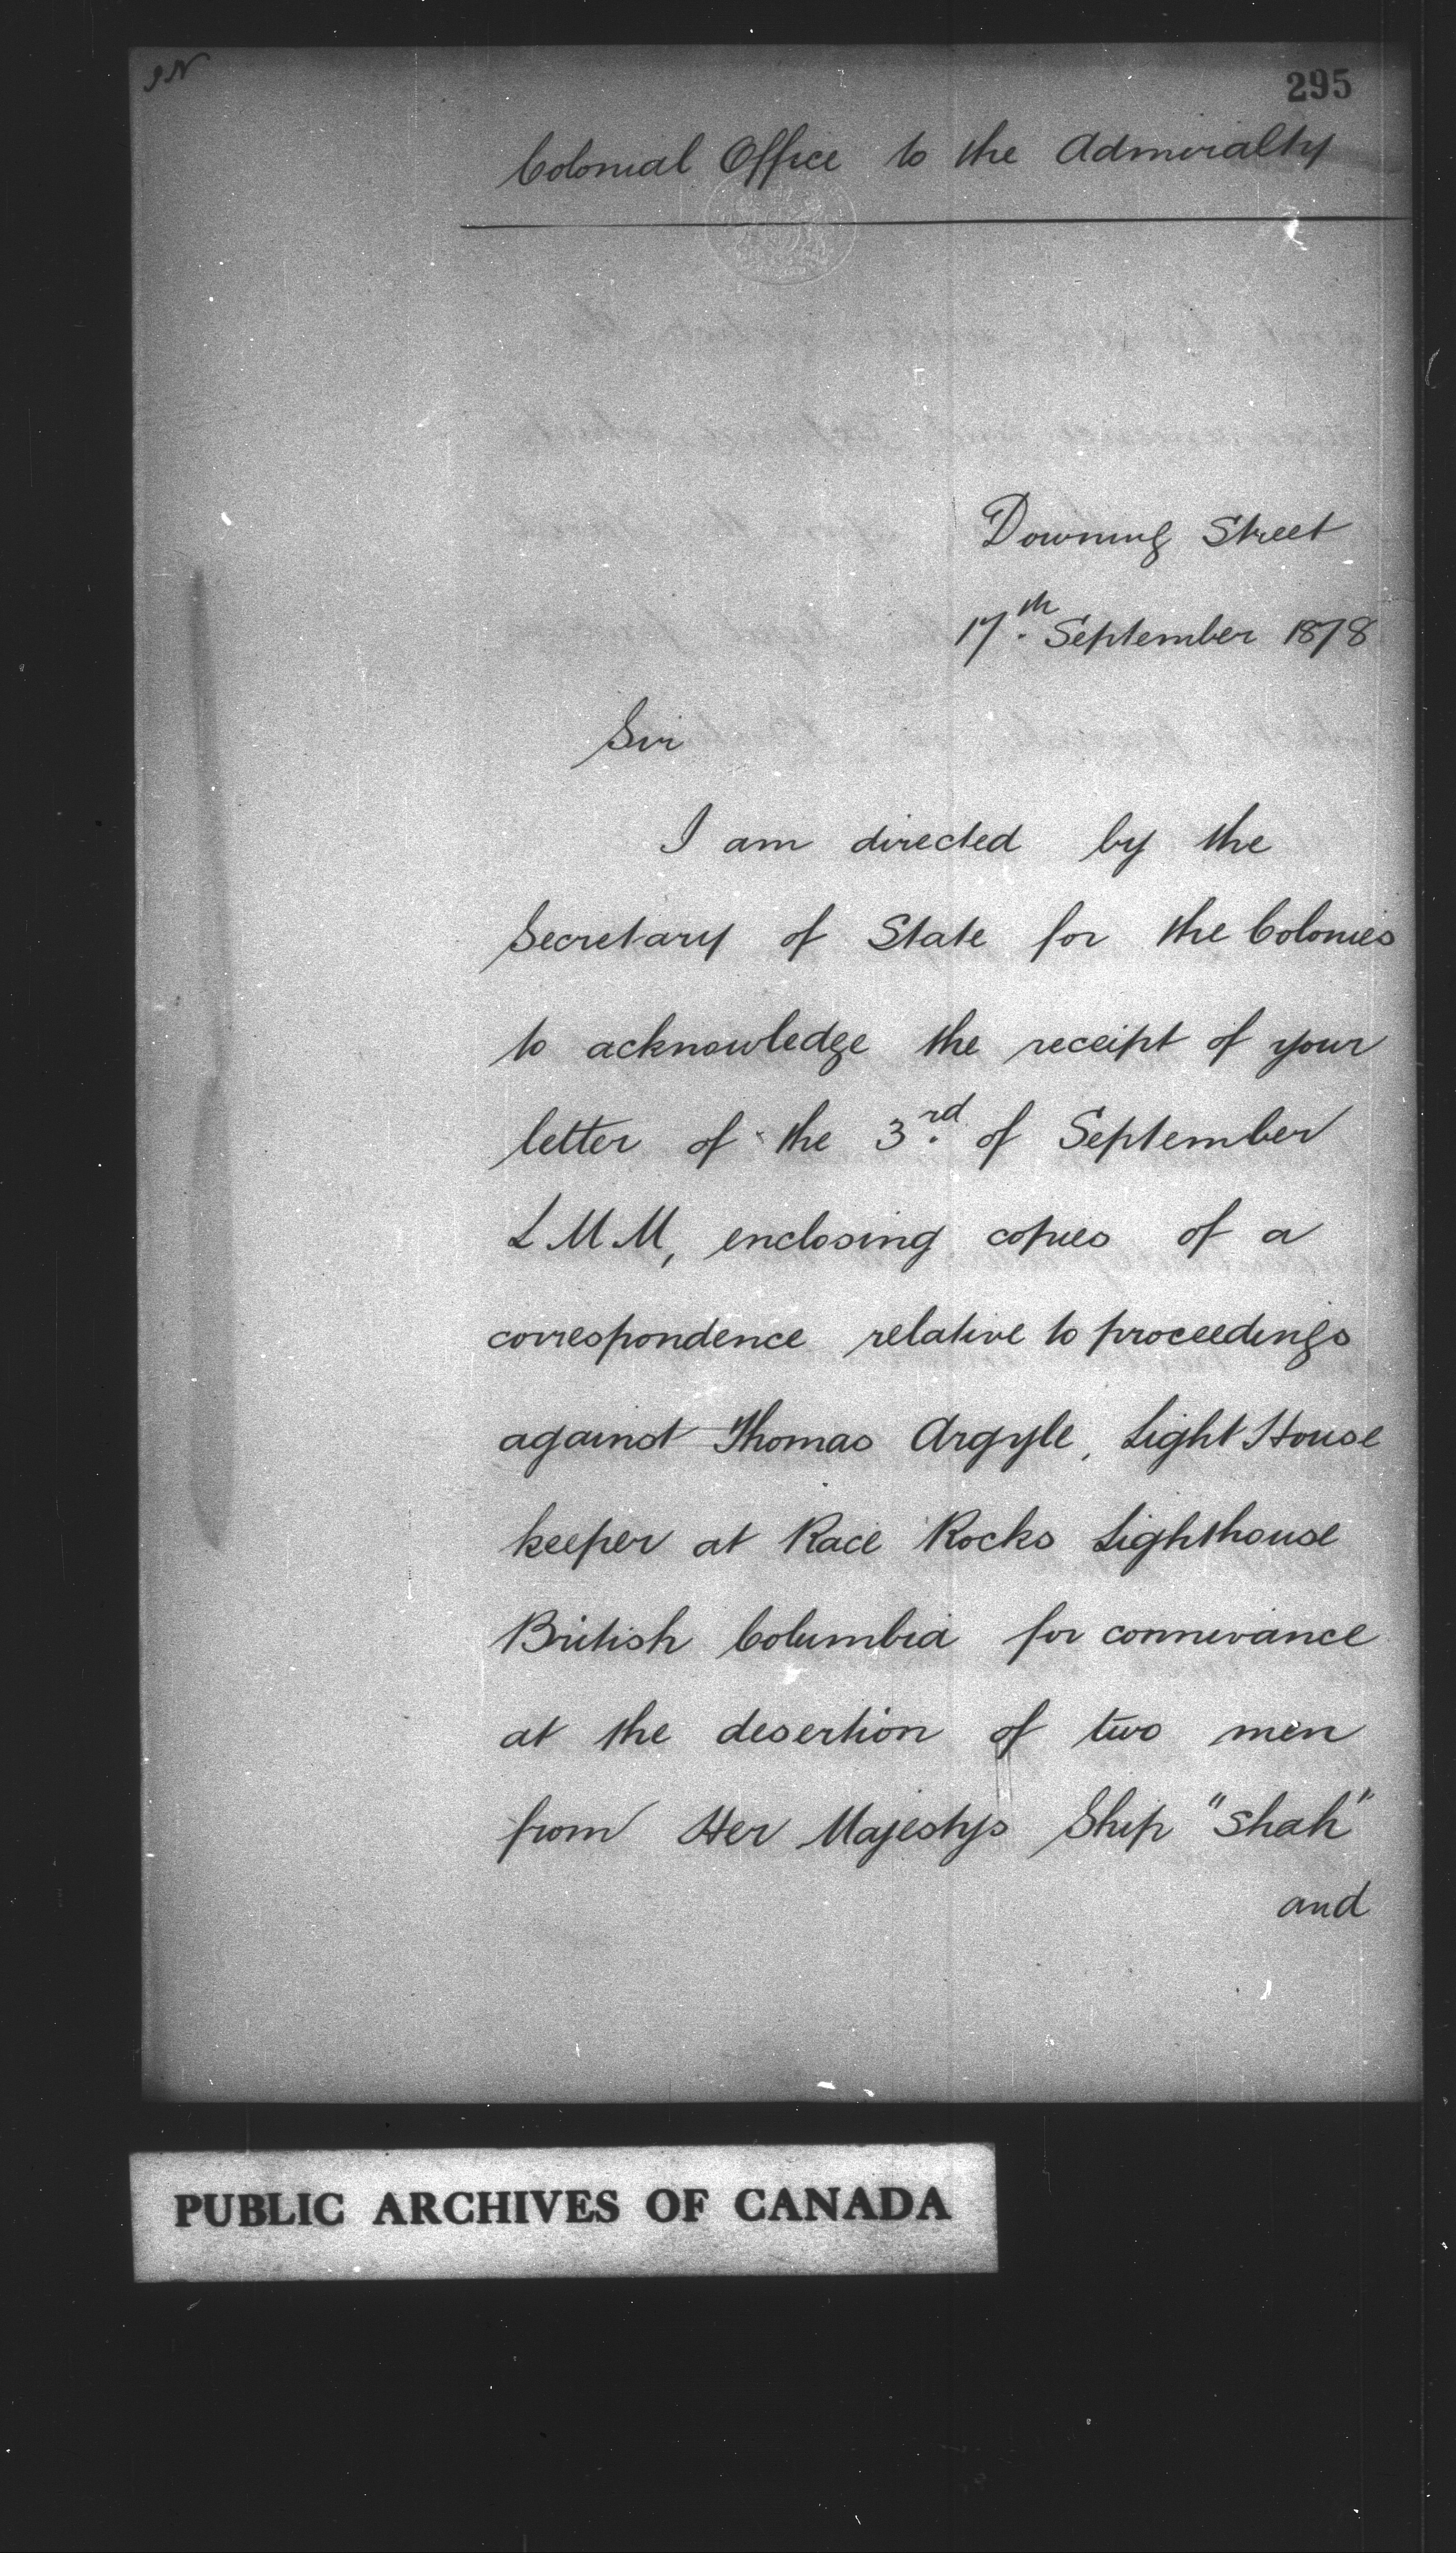 295
Colonial Office to the Admiralty
Downing Street
17th. September 1878
Sir
I am directed by the
Secretary of State for the Colonies
to acknowledge the receipt of your
letter of the 3rd. of September
L M M, enclosing copies of a
correspondence relative to proceedings
against Thomas Argyle, Light House
keeper at Race Rocks Lighthouse
British Columbia for connivance
at the desertion of two men
from Her Majestys Ship "Shah"
and
PUBLIC ARCHIVES OF CANADA